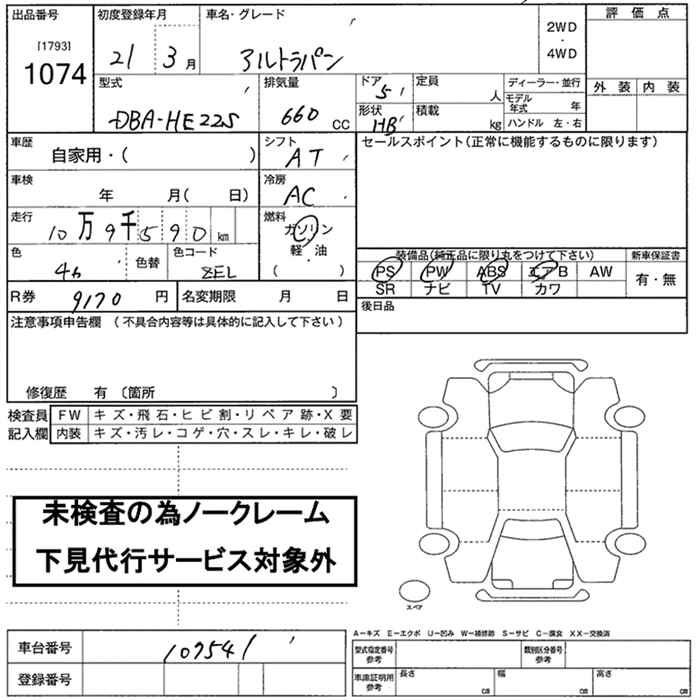 出品番号
[1793]
1074
初度登録年月
21 3月
車名・グレード
アルトラパン
2WD
・
4WD
評価点
外装 内装
型式
DBA-HE22S
排気量
660 CC
ドア
5
形状
HB
定員
人
積載
kg
ディーラー・並行
モデル年式 年
ハンドル 左・右
車歴
自家用・( )
シフト
AT
セールスポイント(正常に機能するものに限ります)
車検
年 月( 日)
冷房
AC
走行
10万9千590km
燃料
ガソリン
軽・油
( )
色
色替
色コード
ZEL
装備品(純正品に限り丸をつけて下さい)
PS PW ABS エアB AW
SR ナビ TV カワ
新車保証書
有・無
R券 9170 円
名変期限 月 日
後日品
注意事項申告欄 (不具合内容等は具体的に記入して下さい)
修復歴 有 〔箇所 〕
検査員記入欄
FW キズ・飛石・ヒビ割・リペア跡・X要
内装 キズ・汚レ・コゲ・穴・スレ・キレ・破レ
未検査の為ノークレーム
下見代行サービス対象外
スペア
A－キズ E－エクボ U－凹み W－補修跡 S－サビ C－腐食 XX－交換済
車台番号 107541
登録番号
型式指定番号参考
類別区分番号参考
車庫証明用参考
長さ cm 幅 cm 高さ cm